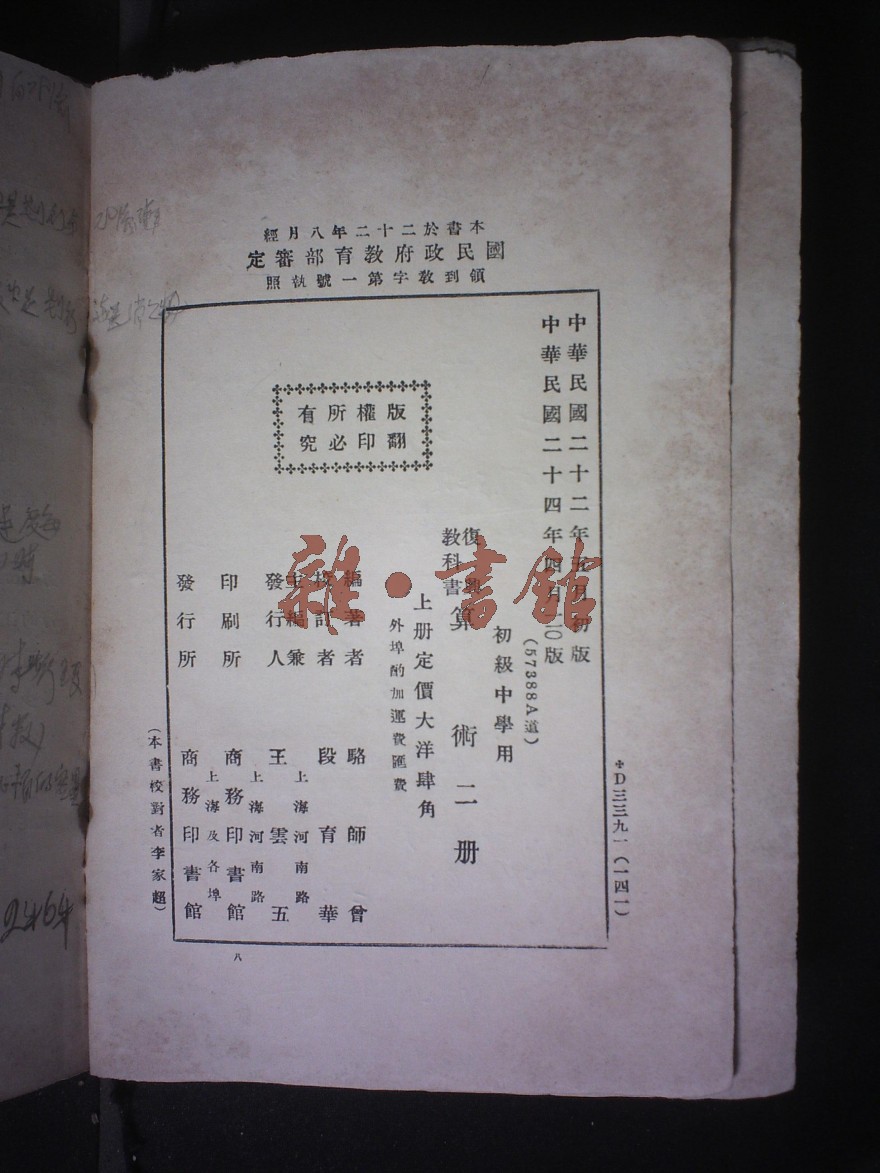 本書於二十二年八月經
國民政府教育部審定
領到教字第一號執照
✤D三三九一(一四一)
中華民國二十二年五月初版
中華民國二十四年四月一一〇版
(57388A道)
初級中學用
復興教科書 算術二册
上册定價大洋肆角
外埠酌加運費匯費
版權所有
翻印必究
編著者 駱師曾
校訂者 段育華
主編兼發行人 王雲五
上海河南路
印刷所 商務印書館
上海河南路
發行所 商務印書館
上海及各埠
(本書校對者李家超)
八
雜·書館
2464